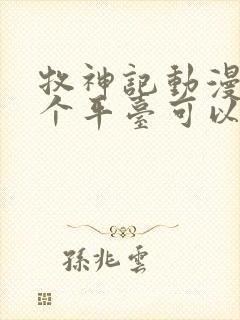 牧神記動漫
个平臺可以
孫兆雲